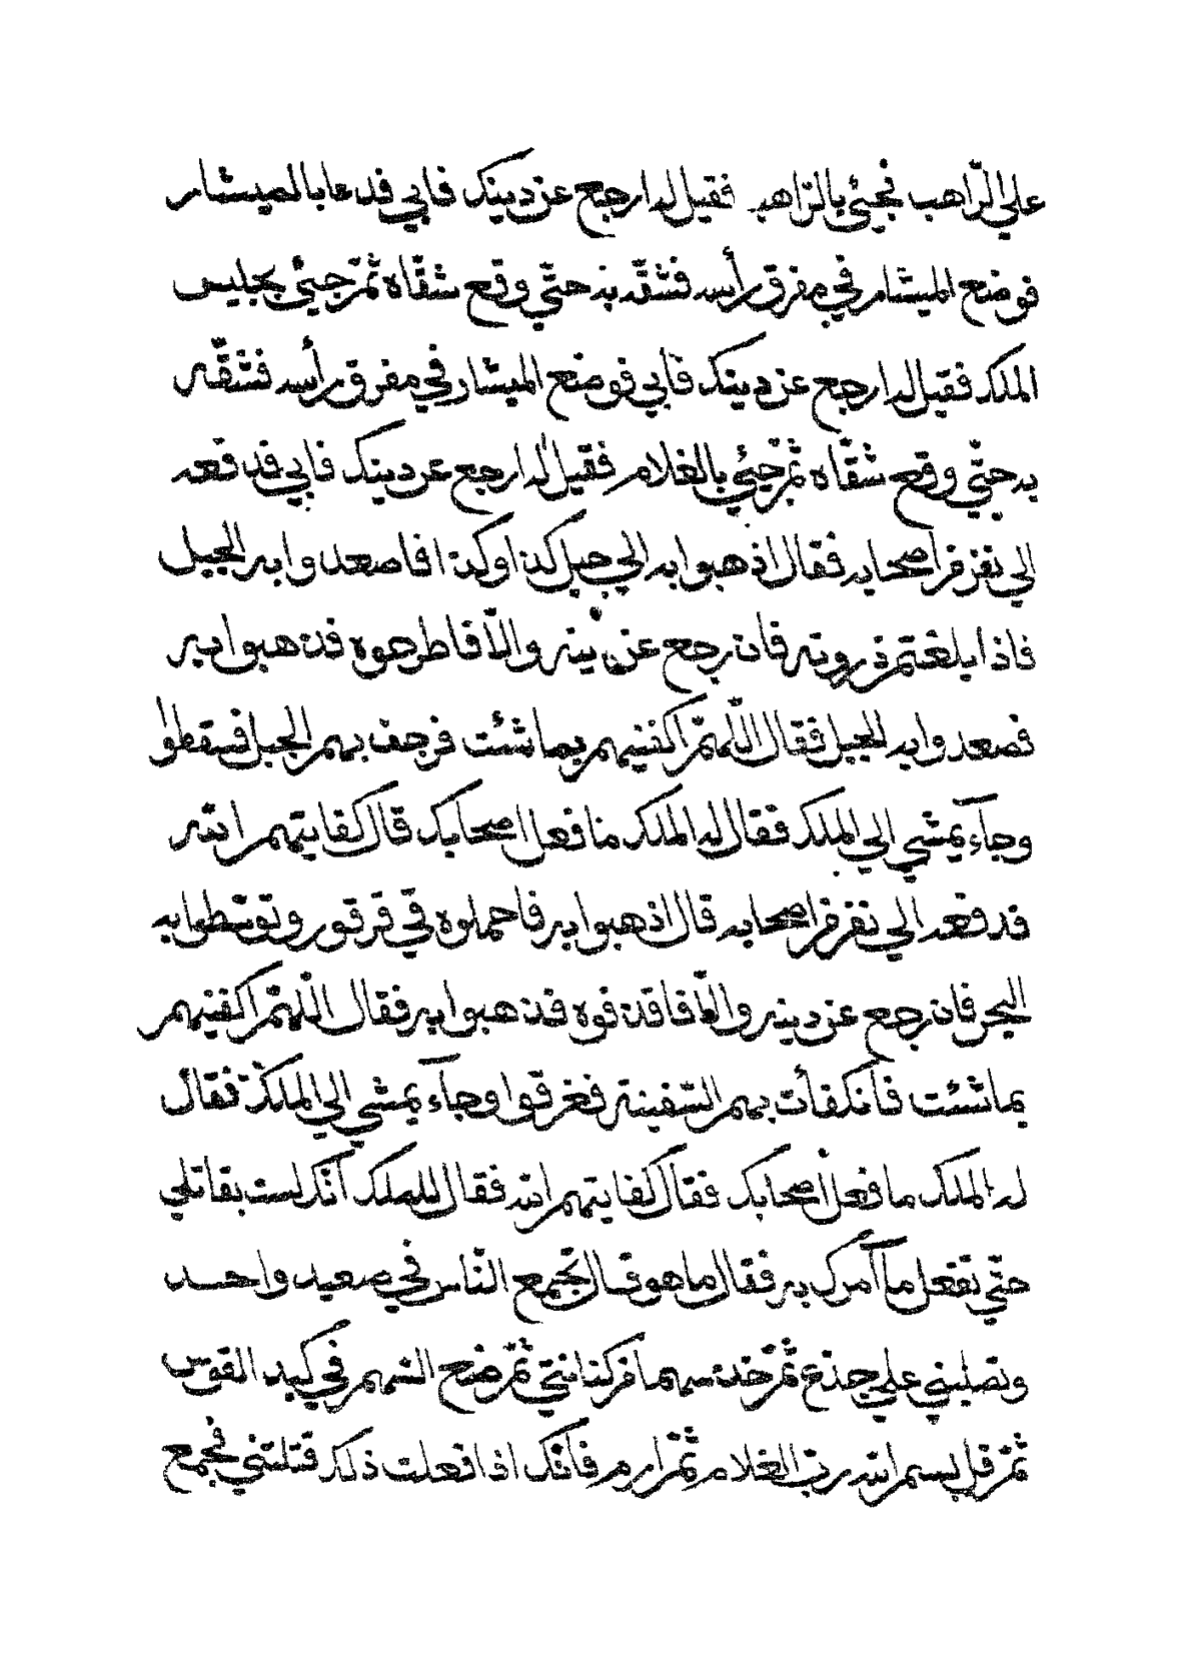 علي الرّاهب فجيئ بالرّاهب فقيل له ارجع عن دينك فابي فدعا بالميشار
فوضع الميشار في مفرق رأسه فشقّه به حتّي وقع شقّاه ثمّ جيئ بجليس
الملك فقيل له ارجع عن دينك فابي فوضع الميشار في مفرق رأسه فشقّه
به حتّي وقع شقّاه ثمّ جيئ بالغلام فقيل له ارجع عن دينك فابي فدفعه
الي نفر من اصحابه فقال اذهبوا به الي جبل كذا وكذا فاصعدوا به الجبل
فاذا بلغتم ذروته فان رجع عن دينه والّا فاطرحوه فذهبوا به
فصعدوا به الجبل فقال اللّهمّ اكفنيهم بما شئت فرجف بهم الجبل فسقطوا
وجآء يمشي الي الملك فقال له الملك ما فعل اصحابك قال كفانيهم الله
فدفعه الي نفر من اصحابه قال اذهبوا به فاحملوه في قرقور وتوسّطوا به
البحر فان رجع عن دينه والّا فاقذفوه فذهبوا به فقال اللّهمّ اكفنيهم
بما شئت فانكفأت بهم السّفينة فغرقوا وجآء يمشي الي الملك فقال
له الملك ما فعل اصحابك فقال كفانيهم الله فقال للملك انّك لست بقاتلي
حتّي تفعل ما آمرك به فقال ما هو قال تجمع النّاس في صعيد واحد
وتصلبني علي جذع ثمّ خذ سهما من كنانتي ثمّ ضع السّهم في كبد القوس
ثمّ قل بسم الله ربّ الغلام ثمّ ارم فانّك اذا فعلت ذلك قتلتني فجمع